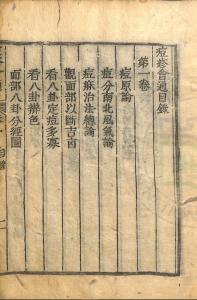 痘疹會通目錄
第一卷
痘原論
痘分南北風氣論
痘疹治法總論
觀面部以斷吉凶
看八卦定痘多寡
看八卦辨色
面部八卦分經圖